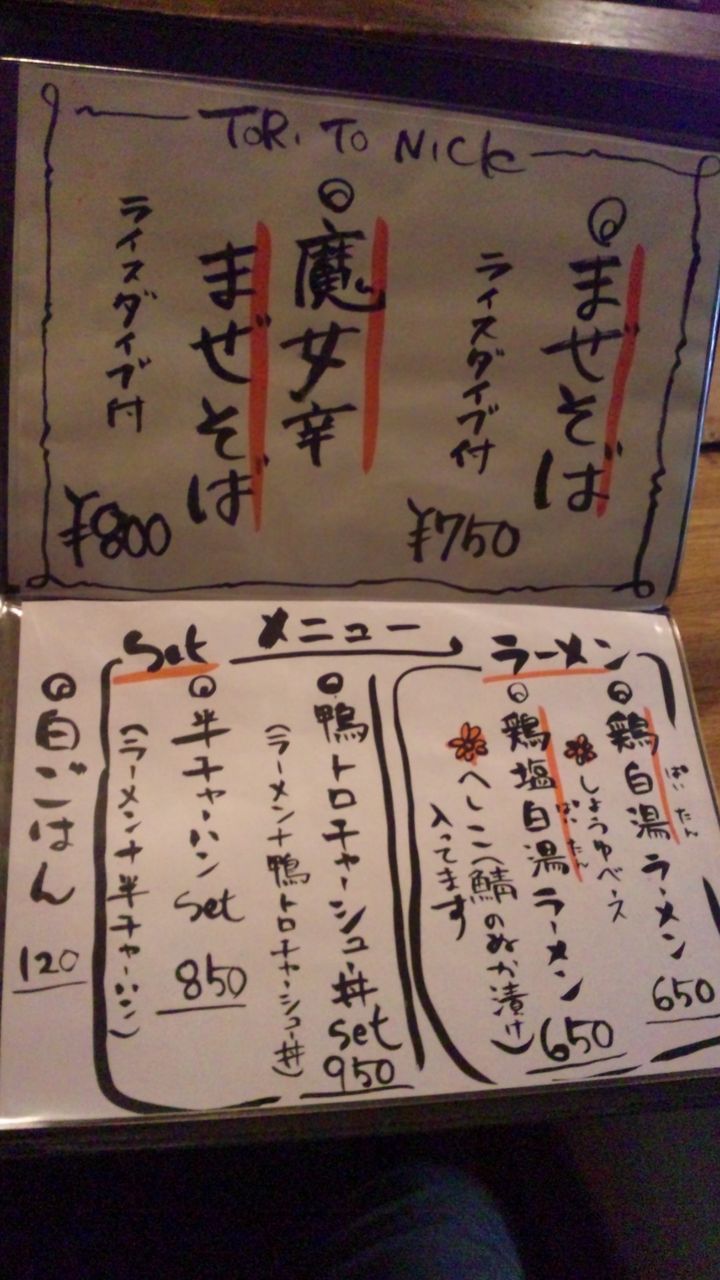 TORI TO NICK
まぜそば
ライスダイブ付
¥750
魔女辛
まぜそば
ライスダイブ付
¥800
メニュー
ラーメン
鶏白湯ラーメン
ぱいたん
しょうゆベース
650
鶏塩白湯ラーメン
ぱいたん
へしこ(鯖のぬか漬け)
入ってます
650
Set
鴨トロチャーシュー丼
set
950
(ラーメン+鴨トロチャーシュー丼)
半チャーハン set
850
(ラーメン+半チャーハン)
白ごはん
120